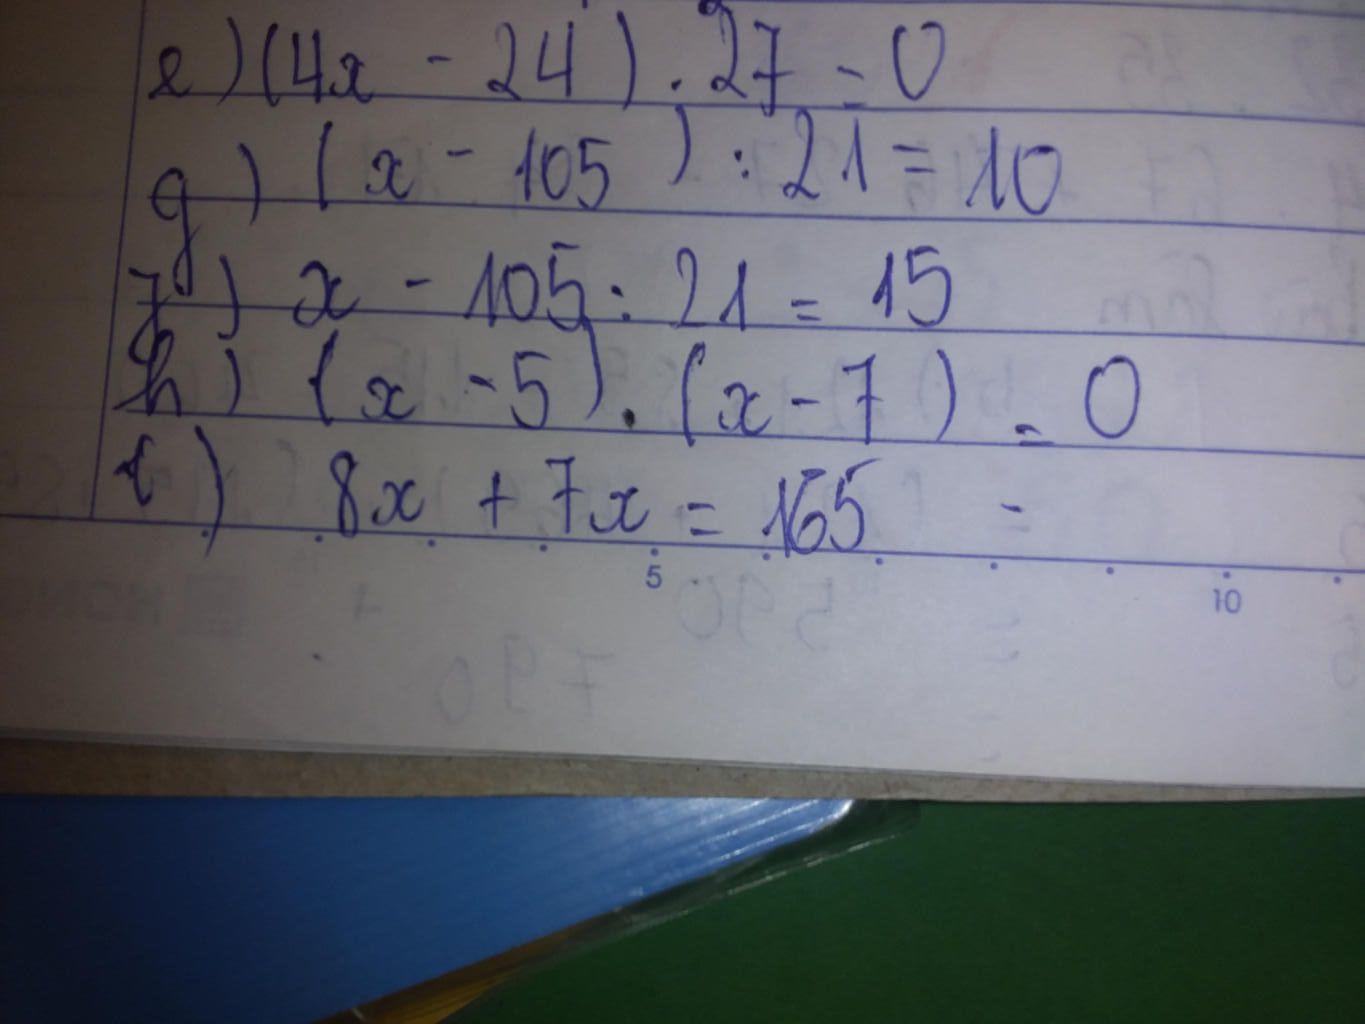 e) (4x - 24) . 27 = 0
g) (x - 105) : 21 = 10
f) x - 105 : 21 = 15
h) (x - 5) . (x - 7) = 0
i) 8x + 7x = 165 -
5 10